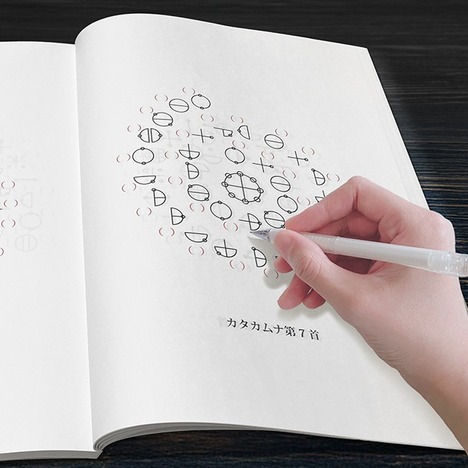 カタカムナ第7首